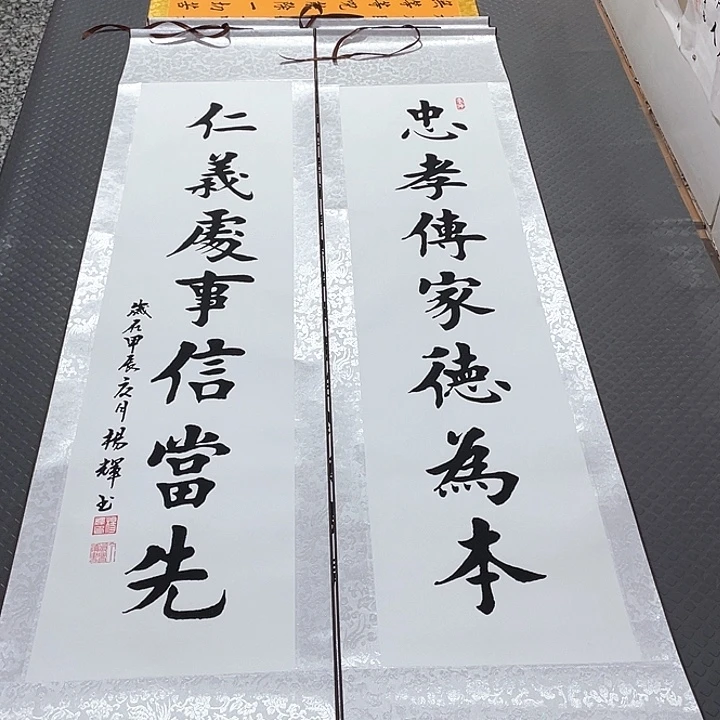 忠孝傳家德為本
仁義處事信當先
歲在甲辰庚月楊輝书